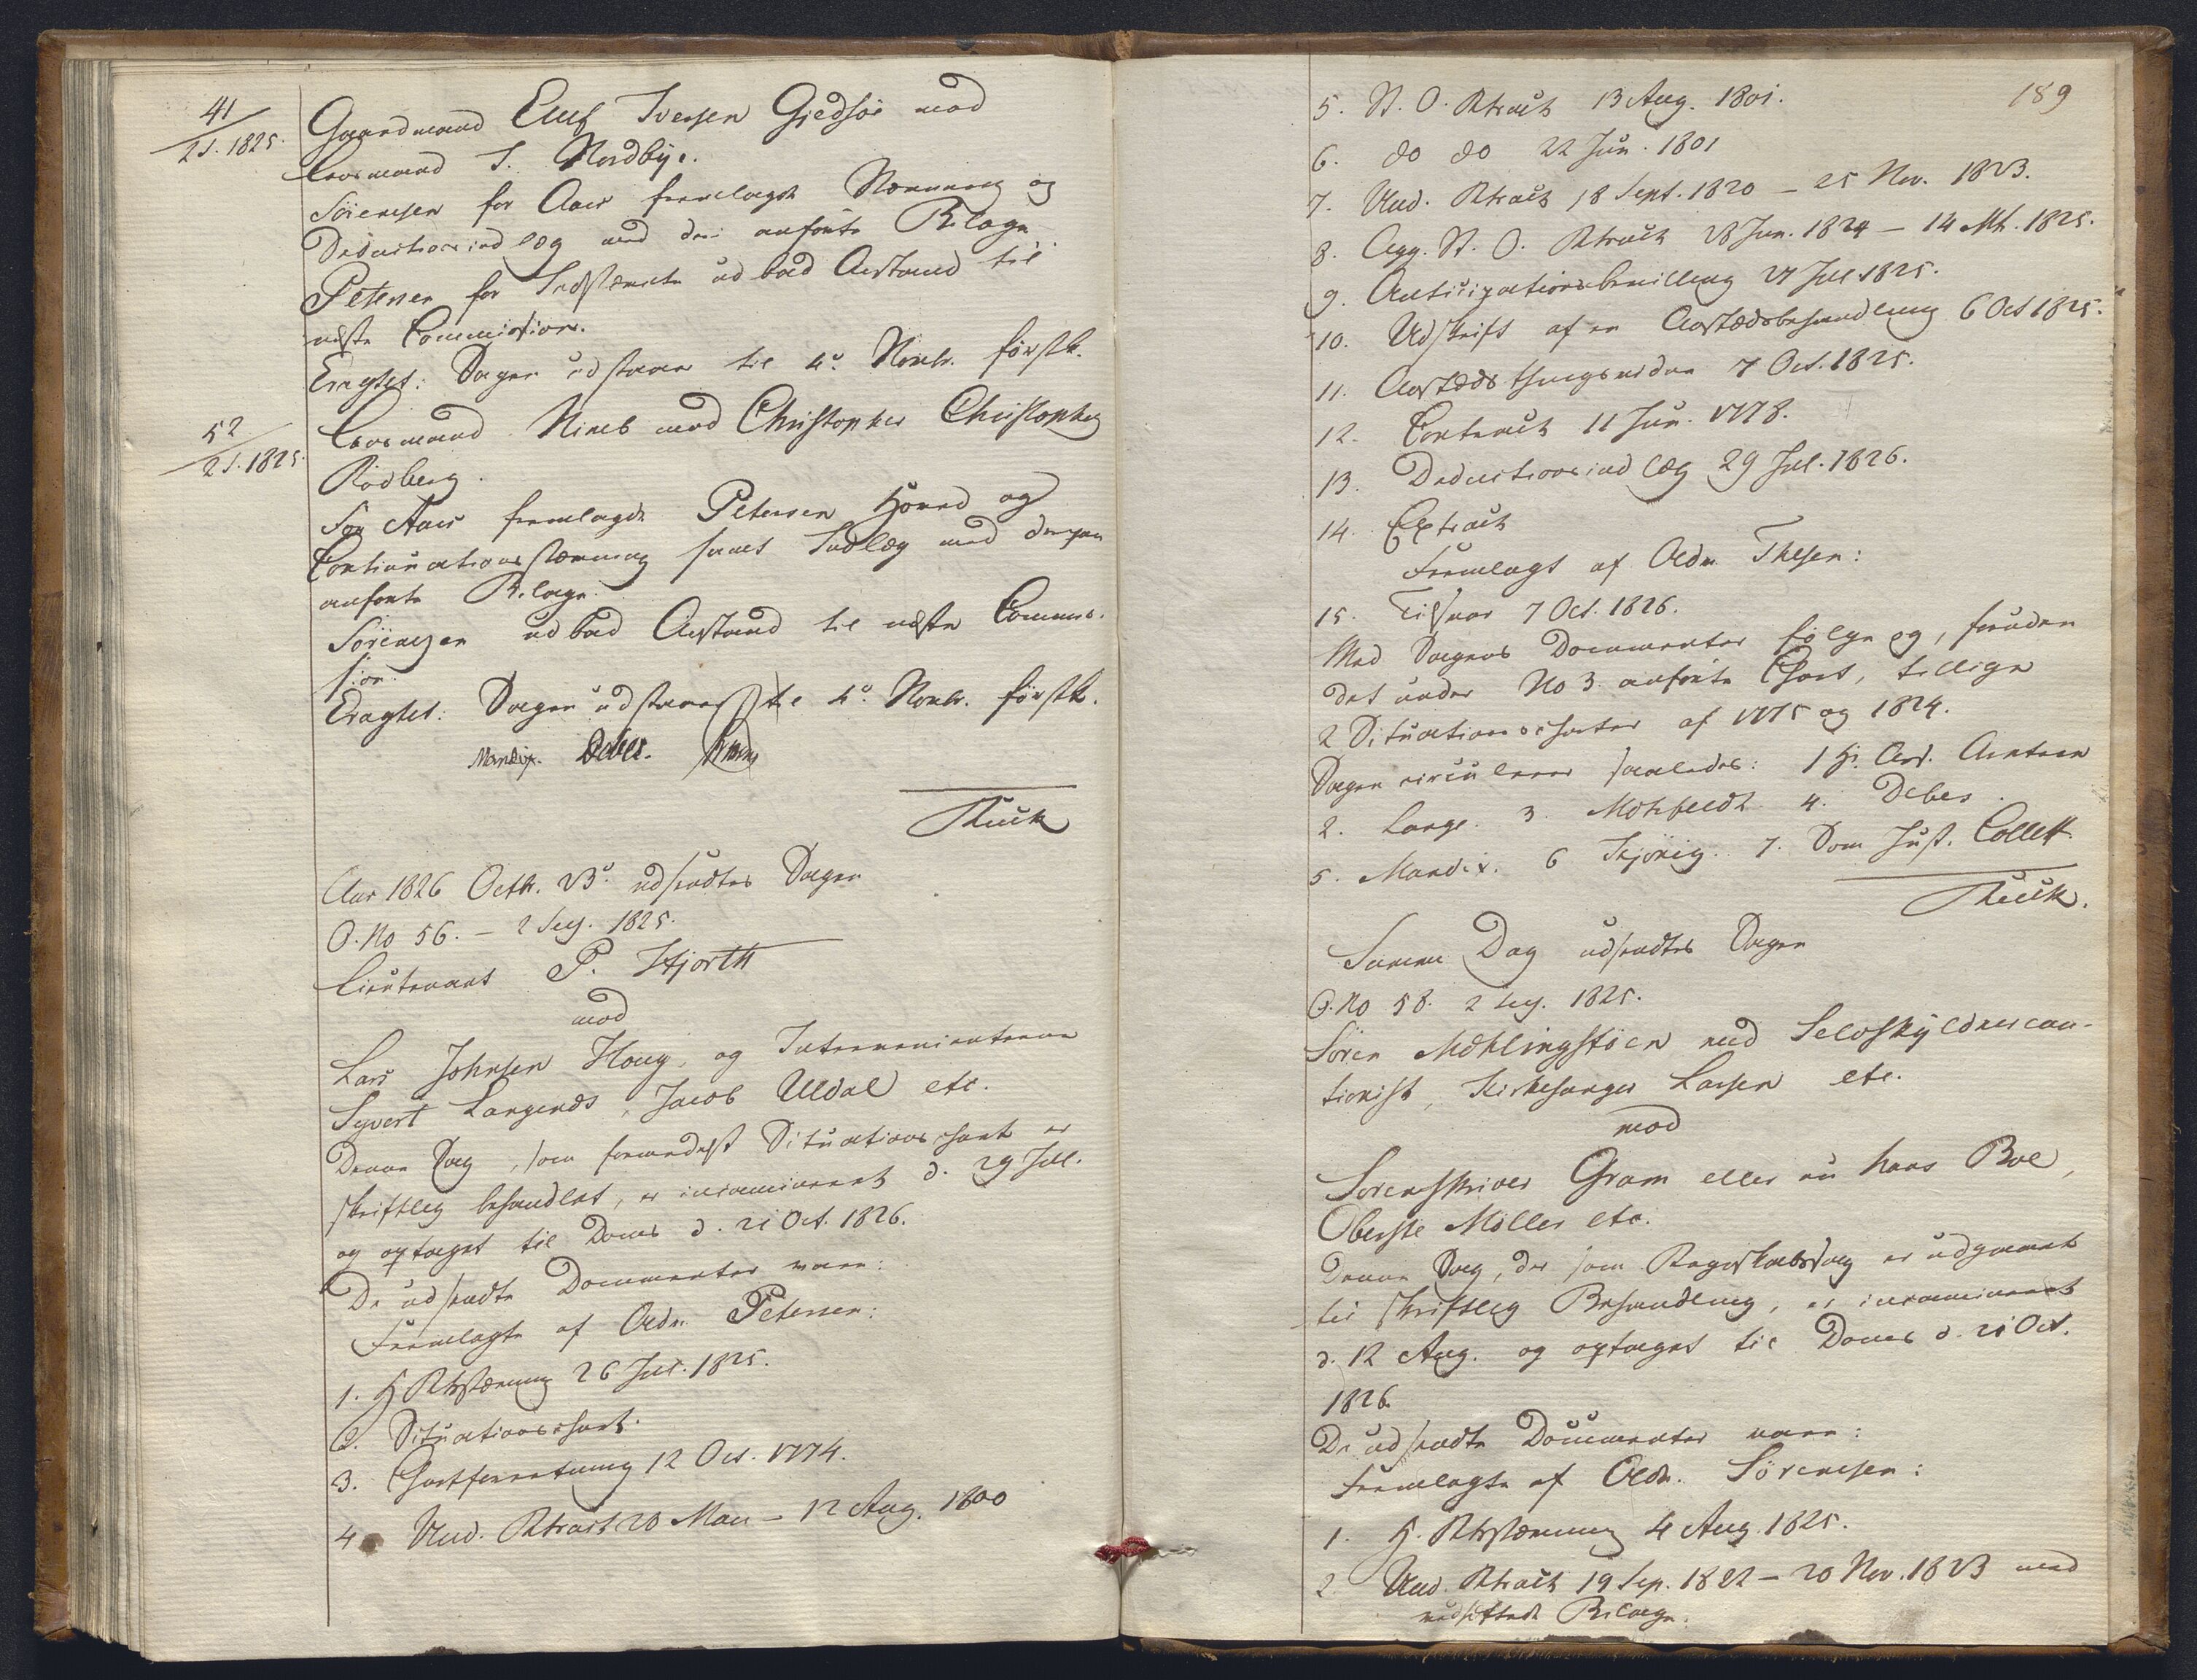 41
2 S. 1825.
Gaardmand Eluf Iversen Gjedsøe mod
Laasmand S. Nordbye.
Sörensen for Aars fremlagde Stevning og
Deductionsindlæg med deri anførte Bilage
Petersen for Indstevnte udbad Anstand til
næste Commission.
Eragtet: Sagen udstaaer til 4de Novbr. førstk.
52
2 S. 1825.
Laasmand Nineb mod Christopher Christophersen
Rødberg.
For Aars fremlagde Petersen Hoved og
Continuationsstevning samt Indlæg med deri
anførte Bilage.
Sörensen udbad Anstand til næste Commis-
sion.
Eragtet: Sagen udstaaer til 4de Novbr. førstk.
Mandix. Debes.
Rück
Aar 1826 Octbr. 23de udsendtes Sagen
O. No 56. – 2 Sess. 1825.
Lieutenant P. Hjorth
mod
Lars Johnsen Houg, og Intervenienterne
Syvert Langends, Jacob Uldal etc.
Denne Sag, som formedelst Situationschart er
skriftlig behandlet, er incamineret d. 29 Jul.
og optaget til Doms d. 21 Oct. 1826.
De udsendte Documenter vare:
Fremlagte af Adv. Petersen:
1. H. Rtsstevning 26 Jul. 1825.
2. Situationschart.
3. Chartforretning 12 Oct. 1774.
4 Und. Rtsact 20 Mai – 12 Aug. 1800
189
5. St. O. Rtsact 13 Aug. 1801.
6. do do 22 Jun. 1801
7. Und. Rtsact 18 Sept. 1820 – 25 Nov. 1823.
8. Agg. St. O. Rtsact 28 Jun. 1824 – 14 Mt. 1825.
9. Anticipationsbevilling 27 Jul 1825.
10. Udskrift af en Aastædsbehandling 6 Oct 1825.
11. Aastæds thingsvidne 7 Oct. 1825.
12. Contract 11 Jun. 1778.
13. Deductionsindlæg 29 Jul. 1826.
14. Extract
Fremlagt af Adv. Thesen:
15. Tilsvar 7 Oct. 1826.
Med Sagens Documenter følge og, foruden
det under No 3 anførte Chart, tillige
2 Situationscharter af 1775 og 1824.
Sagen circulerer saaledes: 1 Hr. Ass.
2. Lange. 3. Motzfeldt 4. Debes
5. Mandix. 6 Schjönig. 7. Dom Just. Collett
Rück.
Samme Dag udsendtes Sagen
O. No 58. 2 Sess. 1825.
Sören Möhlingstöen med Selvskyldnercau-
tionist, Kirkesanger Larsen etc.
mod
Sorenskriver Gram eller nu hans Boe,
Oberste Möller etc.
Denne Sag, der som Regnskabssag er udgaaet
til skriftlig Behandling, er incamineret
d. 12 Aug. og optaget til Doms d. 21 Oct.
1826.
De udsendte Documenter vare:
Fremlagte af Adv. Sörensen:
1. H. Rtsstevning 4 Aug. 1825.
2. Und. Rtsact 19 Sep. 1822 – 20 Nov. 1823 med
vedheftede Bilage.